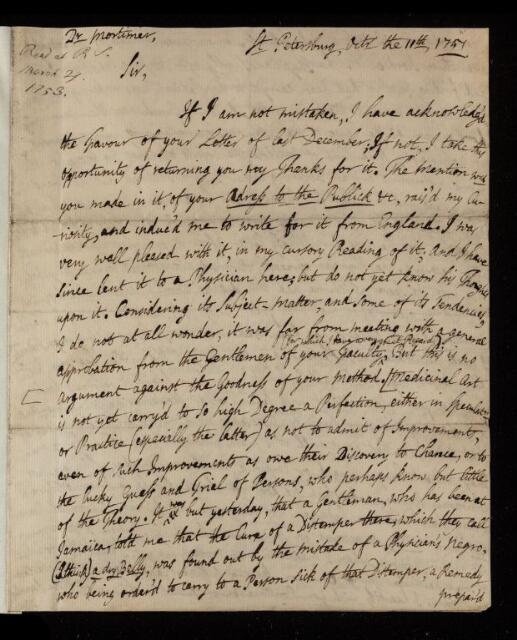 Dr Mortimer,
St Petersburg, Octr the 11th, 1751
Read at R S.
March 29.
1753.
Sir,
If I am not mistaken, I have acknowledg'd
the Favour of your Letter of last December; If not, I take this
opportunity of returning you my Thanks for it. The Mention
you made in it, of your Adress to the Publick &c, rais'd my Cu-
riosity, and induc'd me to write for it from England. I was
very well pleased with it, in my cursory Reading of it, and I have
since lent it to a Physician here; but do not yet know his Thoughts
upon it. Considering its Subject-matter, and some of its Tendencies,
I do not at all wonder, it was far from meeting with a general
(for which I have a very great Regard)
approbation from the Gentlemen of your Faculty. But this is no
argument against the Goodness of your Method. [Medicinal Art
is not yet carry'd to so high Degree a Perfection, either in Speculation
or Practice (especially the latter) as not to admit of Improvements,
even of such Improvements as owe their Discovery to Chance, or to
the lucky Guess and Trial of Persons, who perhaps know but little
of the Theory. It was but yesterday, that a Gentleman, who has been at
Jamaica, told me that the Cure of a Distemper there, which they call
(I think) a dry Belly, was found out by the mistake of a Physician's Negro.
who being order'd to carry to a Person sick of that Distemper, a Remedy
prepar'd